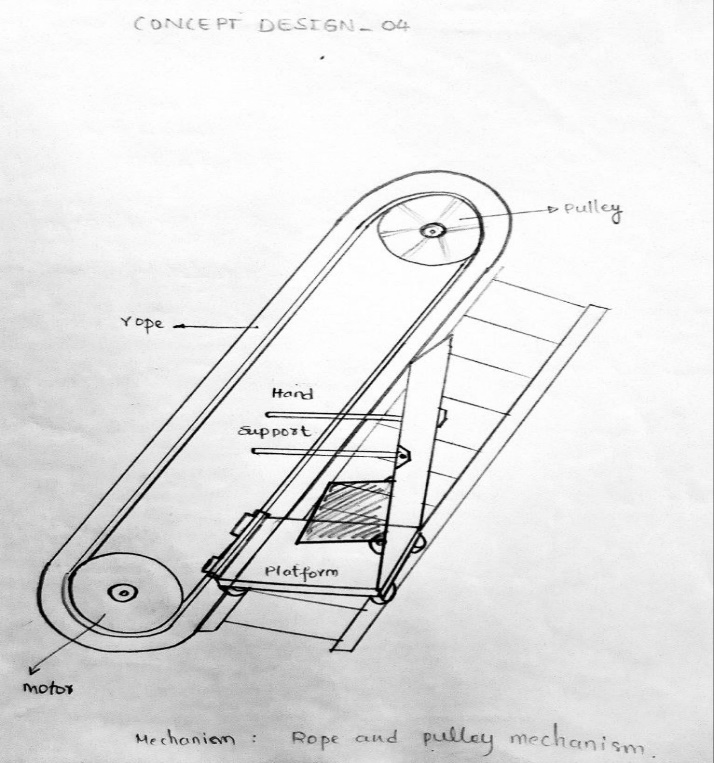 CONCEPT DESIGN - 04
pulley
rope
Hand
support
Platform
motor
Mechanism : Rope and pulley mechanism.